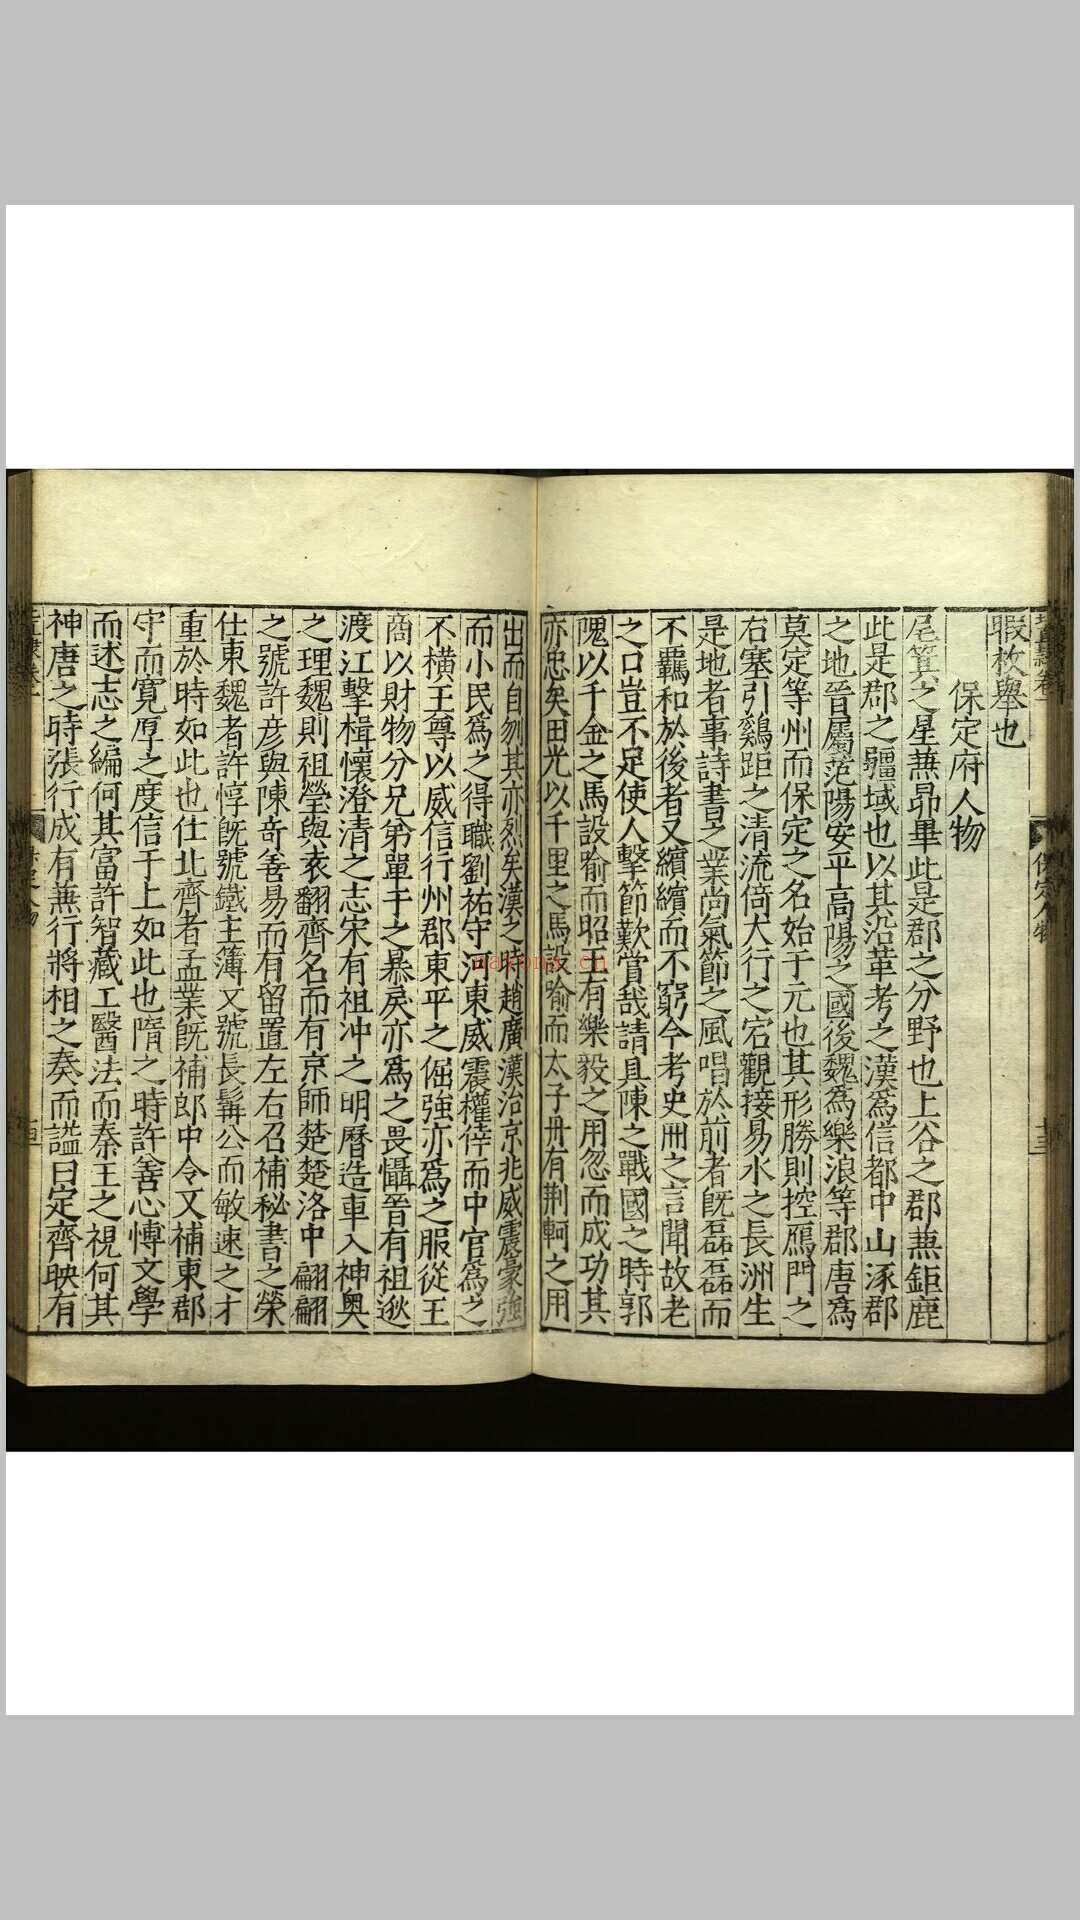 暇枚舉也
保定府人物
尾箕之星兼昴畢此是郡之分野也上谷之郡兼鉅鹿
此是郡之疆域也以其沿革考之漢爲信都中山涿郡
之地晉屬范陽安平高陽之國後魏爲樂浪等郡唐爲
莫定等州而保定之名始于元也其形勝則控鴈門之
右塞引鷄距之清流倚大行之宕觀接易水之長洲生
是地者事詩書之業尚氣節之風唱於前者旣磊磊而
不羈和於後者又繽繽而不窮今考史冊之言聞故老
之口豈不足使人擊節歎賞哉請具陳之戰國之時郭
隗以千金之馬設喻而昭王有樂毅之用忽而成功其
亦忠矣田光以千里之馬設喻而太子丹有荆軻之用
出而自刎其亦烈矣漢之時趙廣漢治京兆威震豪強
而小民爲之得職劉祐守河東威震權倖而中官爲之
不橫王尊以威信行州郡東平之倔強亦爲之服從王
商以財物分兄弟單于之暴戾亦爲之畏懾晉有祖逖
渡江擊楫懷澄清之志宋有祖冲之明曆造車入神奥
之理魏則祖瑩與袁翻齊名而有京師楚楚洛中翩翩
之號許彦與陳竒善易而有留置左右召補秘書之榮
仕東魏者許惇旣號鐵主簿又號長鬅公而敏速之才
重於時如此也仕北齊者孟業旣補郎中令又補東郡
守而寛厚之度信于上如此也隋之時許善心慱文學
而述志之編何其富許智藏工醫法而秦王之視何其
神唐之時張行成有兼行將相之奏而諡曰定齊映有
nayona.cn